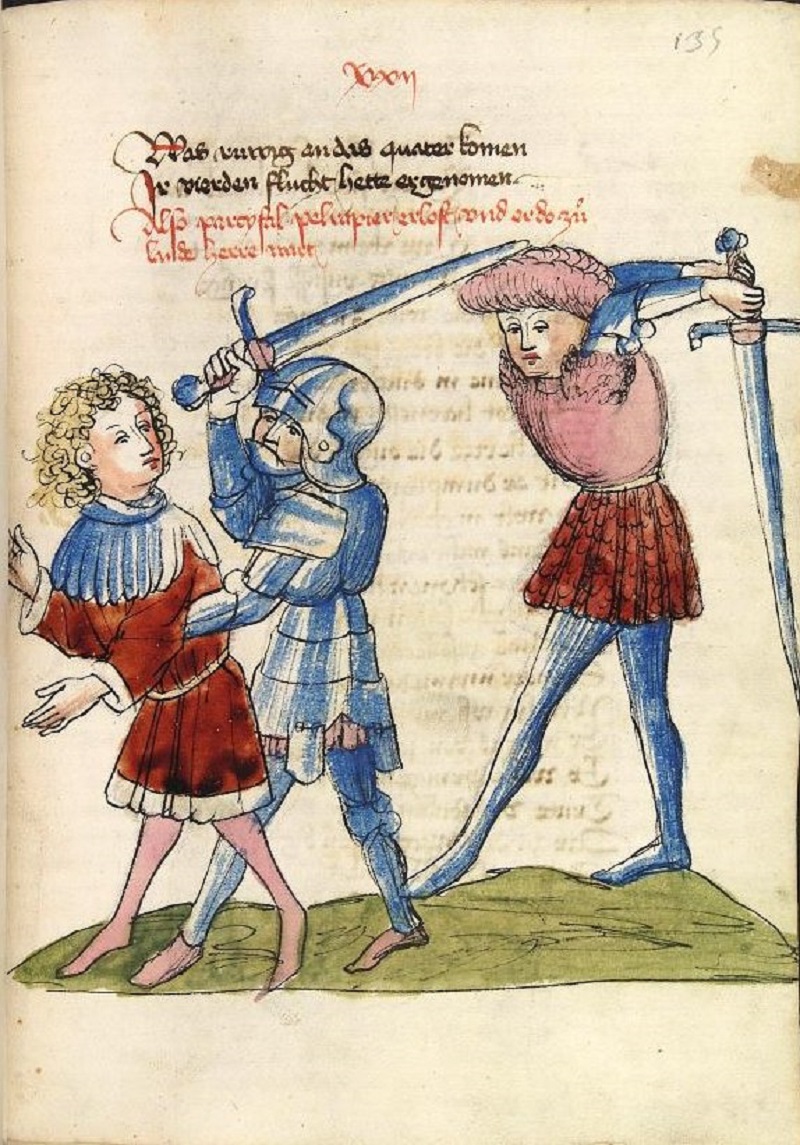 135
xxxii
Was ruwig an das quater komen
Ir vierden flucht hette er genomen
Alß parcyfal pelrapier erlost vnd er do zů
lande herre wart